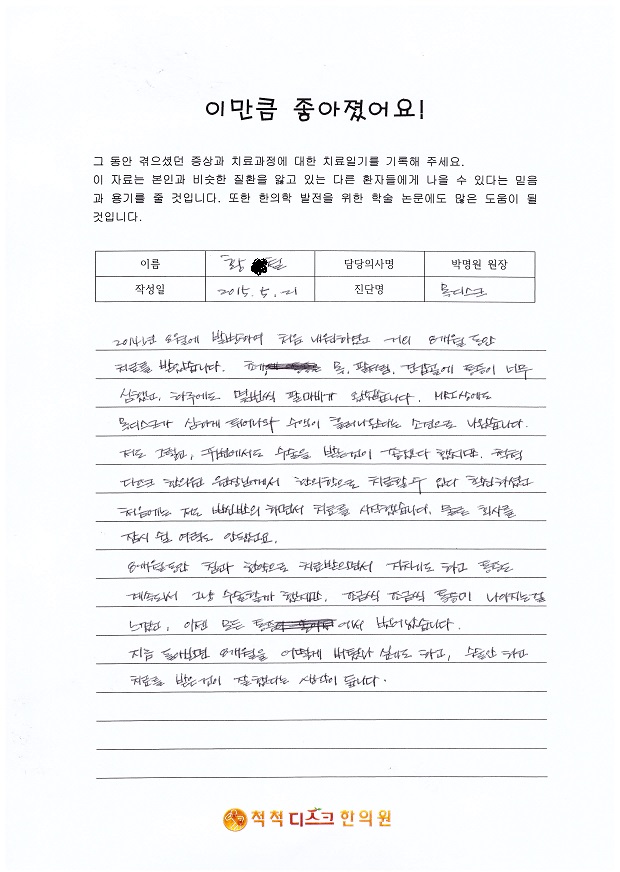 이만큼 좋아졌어요!
그 동안 겪으셨던 증상과 치료과정에 대한 치료일기를 기록해 주세요.
이 자료는 본인과 비슷한 질환을 앓고 있는 다른 환자들에게 나을 수 있다는 믿음
과 용기를 줄 것입니다. 또한 한의학 발전을 위한 학술 논문에도 많은 도움이 될
것입니다.
이름 황 담당의사명 박명원 원장
작성일 2015. 5. 21 진단명 목디스크
2014년 8월에 발병하여 처음 내원하였고 거의 8개월 동안
치료를 받았습니다. 목, 팔저림, 견갑골에 통증이 너무
심했고, 하루에도 몇번씩 팔마비가 왔었습니다. MRI상에도
목디스크가 심하게 튀어나와 수액이 흘러나왔다는 소견으로 나왔습니다.
저도 그렇고, 주변에서도 수술을 받는것이 좋겠다 했지만, 척척
디스크 한의원 원장님께서 한의학으로 치료할수 있다 확신하셨고
처음에는 저도 반신반의 하면서 치료를 시작했습니다. 물론 회사를
잠시 쉴 여력도 안되었고요.
8개월동안 침과 한약으로 치료받으면서 지치기도 하고 통증도
계속되서 그냥 수술할까 했지만, 조금씩 조금씩 통증이 나아지는걸
느꼈고, 이젠 모든 통증 에서 벗어났습니다.
지금 돌아보면 8개월을 어떻게 버텼나 싶기도 하고, 수술안 하고
치료를 받은것이 잘했다는 생각이 듭니다.
척척디스크한의원